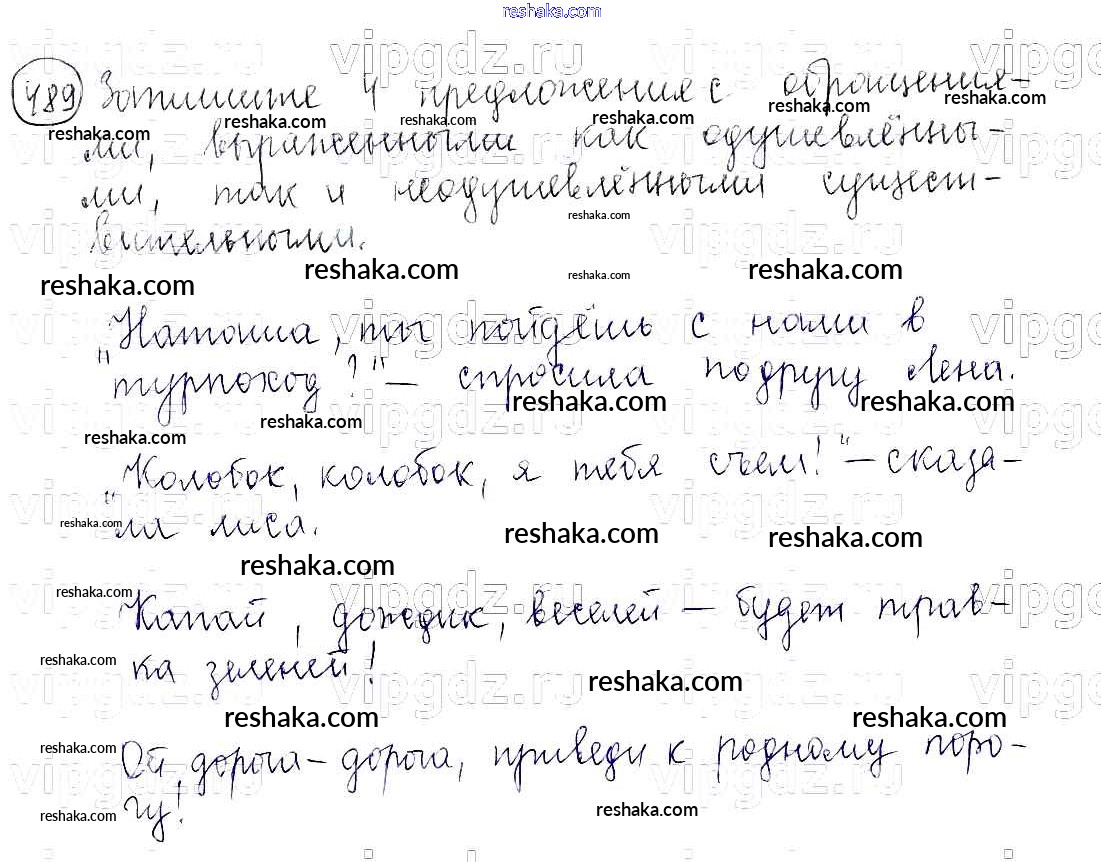 reshaka.com
vipgdz.ru vipgdz.ru vipgdz.ru vipg
489 Запишите 4 предложения с обращения-
reshaka.com reshaka.com reshaka.com reshaka.com reshaka.com
ми, выраженными как одушевлённы-
ми, так и неодушевлённыыми сущест-
reshaka.com
вительными.
reshaka.com reshaka.com reshaka.com reshaka.com
„Наташа, ты пойдёшь с нами в
турпоход?“ — спросила подругу Лена.
reshaka.com reshaka.com reshaka.com reshaka.com
„Колобок, колобок, я тебя съем!“ — сказа-
ла лиса.
reshaka.com reshaka.com reshaka.com
reshaka.com reshaka.com
Капай, дождик, веселей — будет трав-
ка зеленей!
reshaka.com reshaka.com
reshaka.com reshaka.com
Ой, дорога-дорога, приведи к родному поро-
reshaka.com
гу!
reshaka.com reshaka.com